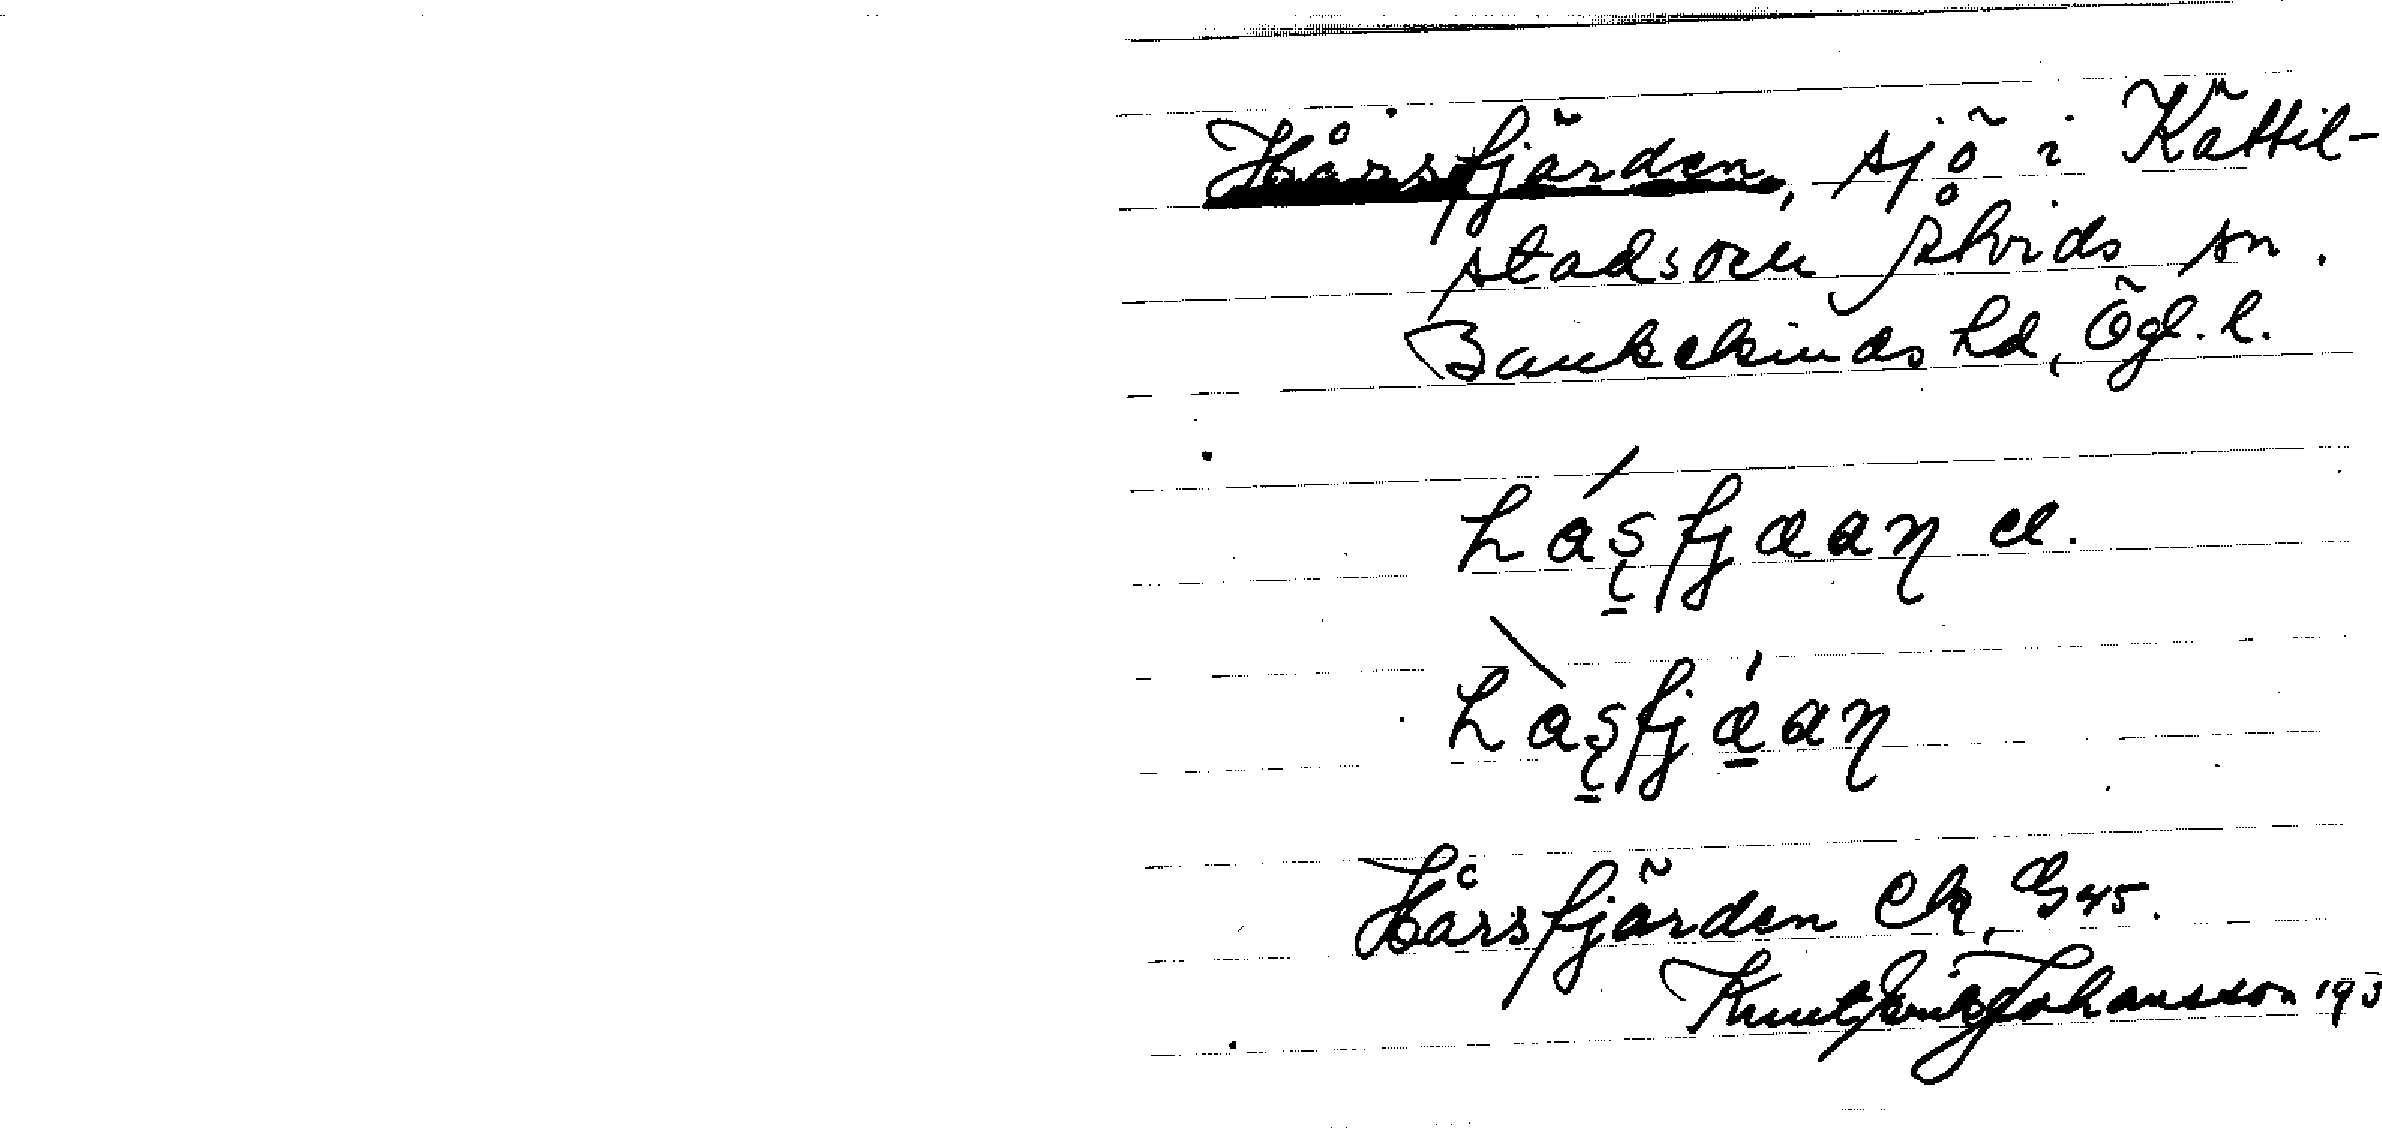 Hårsfjärden, sjö i Kättil-
stads och Åtvids sn.
Bankekinds hd, Ögl. l.
hásfjæaṇ el.
hàsfjǽaṇ
Hårsfjärden Ek, G45.
Knut Erik Johansson 193